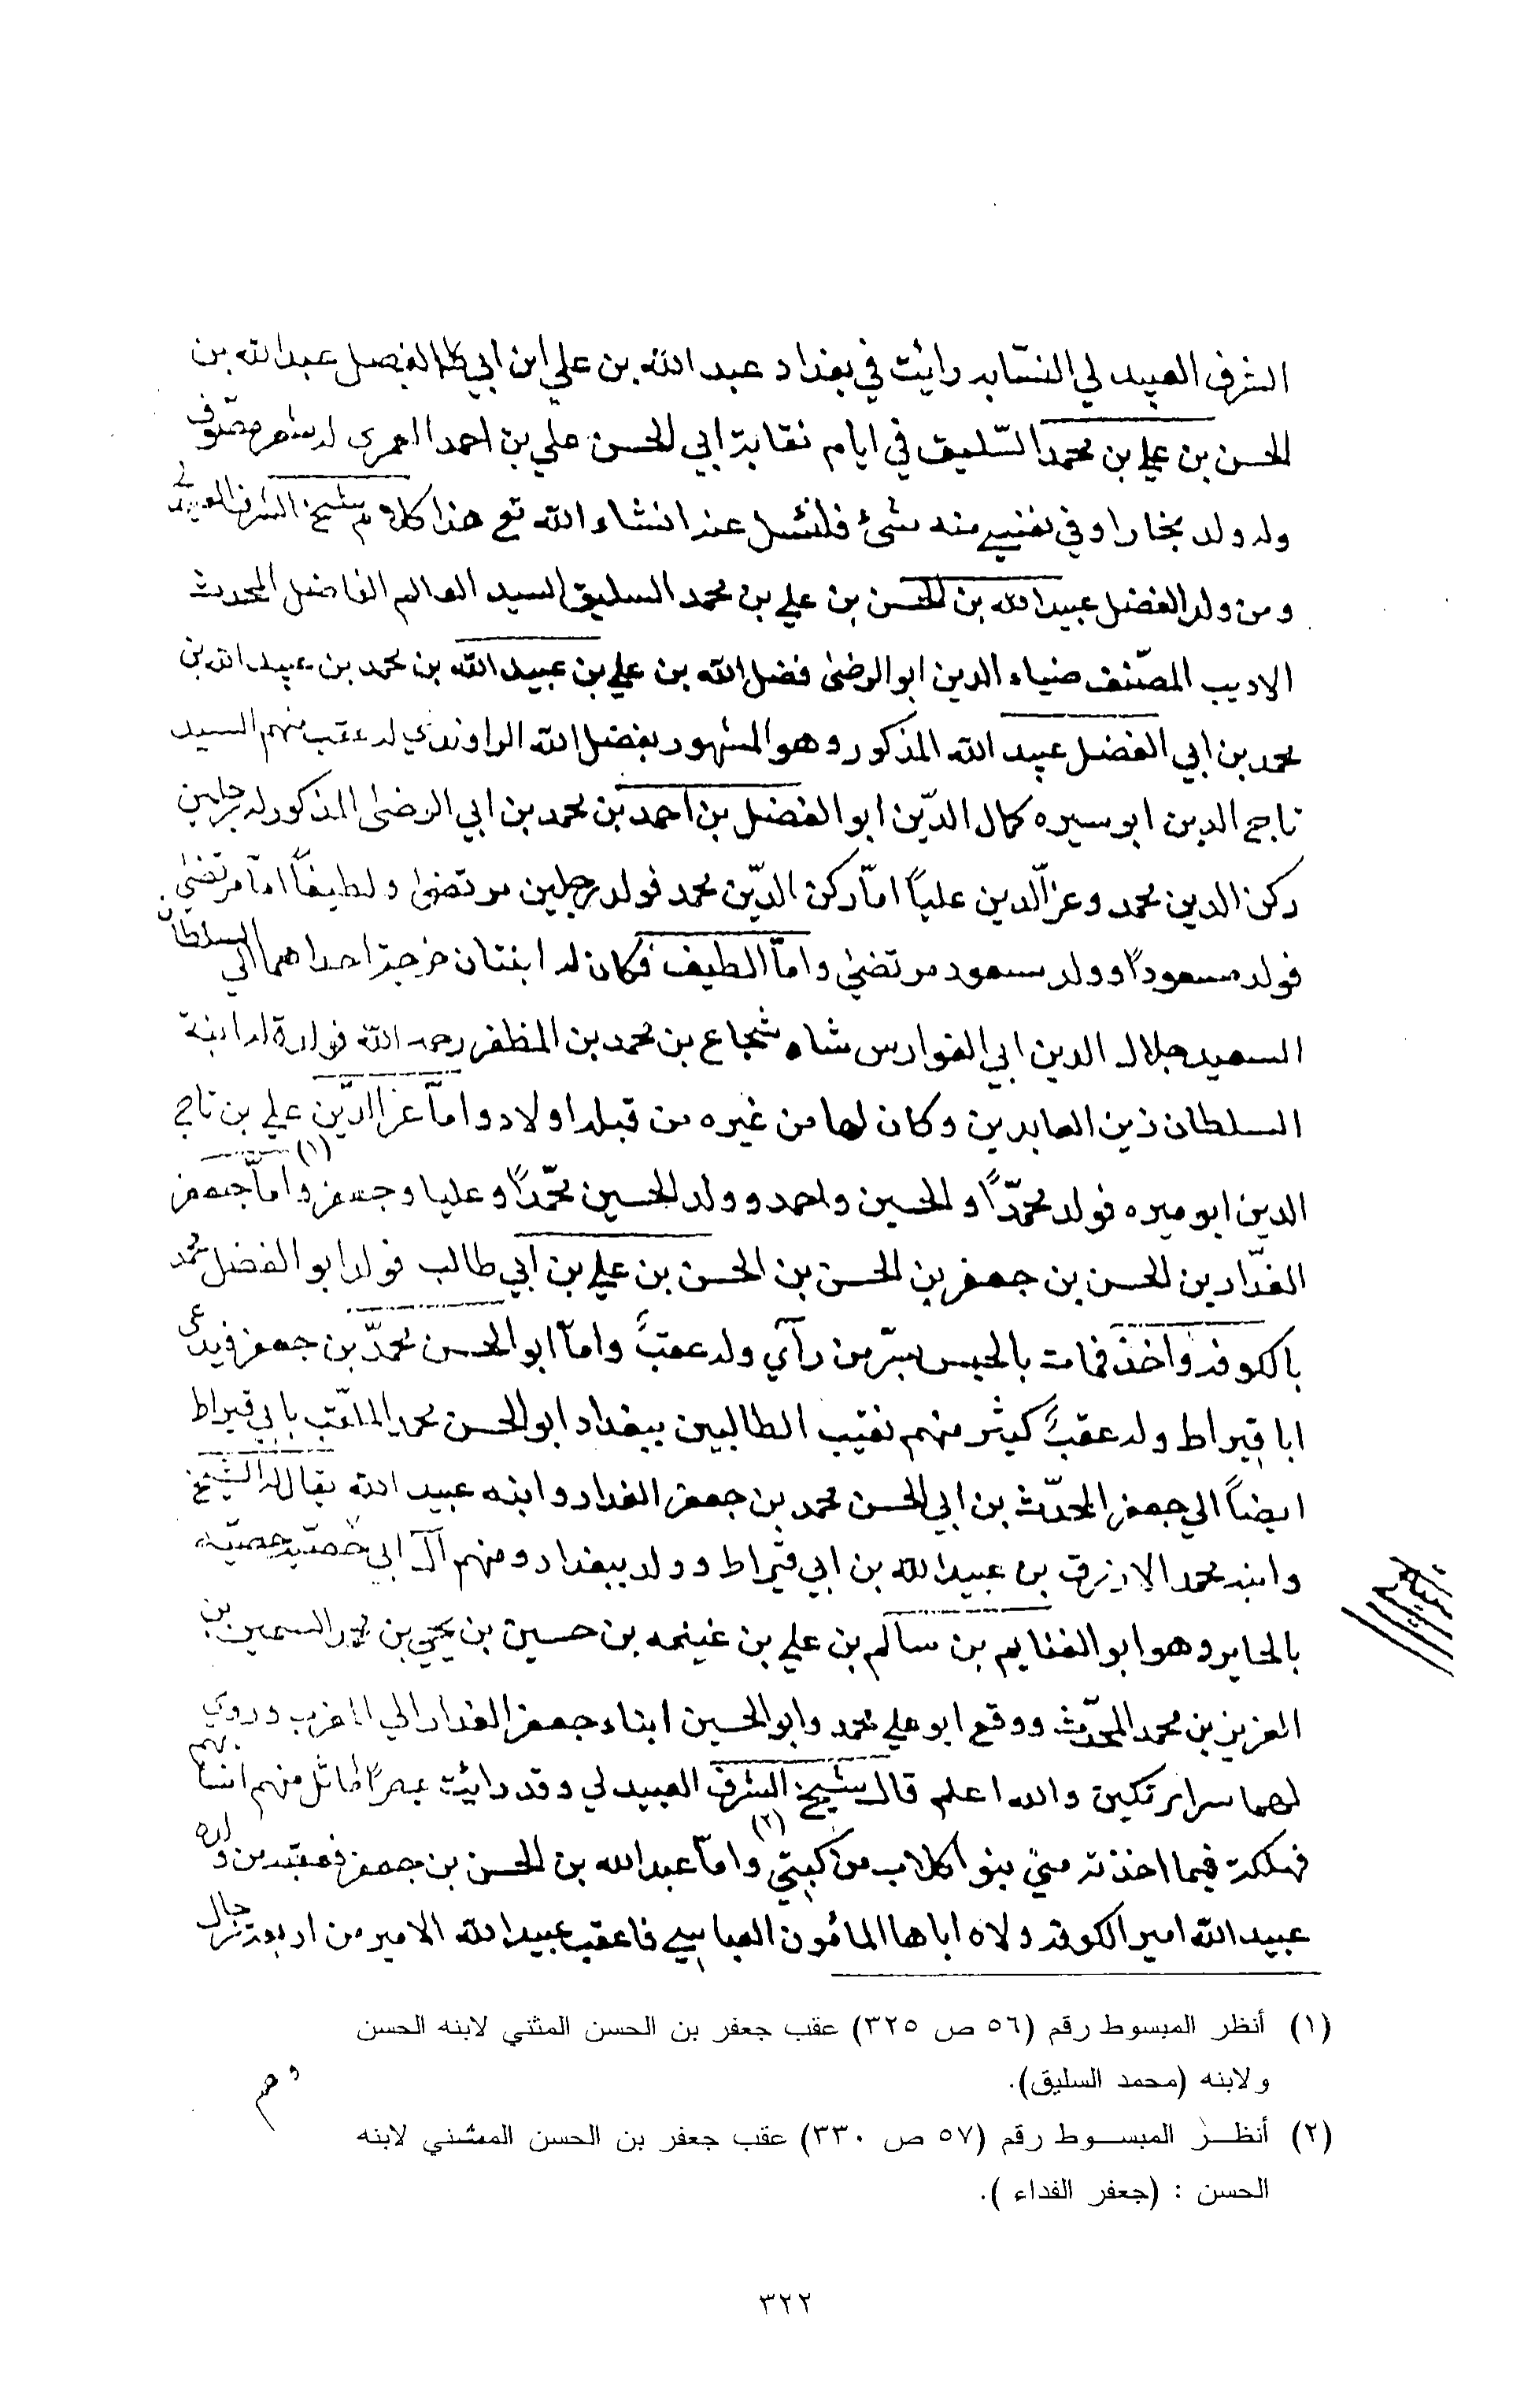 الشرف العبيدلي النسّابه رائيت في بغداد عبد الله بن علي ابن ابي الفضل عبدالله بن
الحسن بن علي بن محمد السّليق في ايام نقابة ابي الحسن علي بن احمد العمرى له شعر متصّوف
وله ولد بخارا وفي نفسي منه شئ فلنسل عند انشاء الله تع هذا كلام شيخ الشرف العبيدلي
ومن ولد الفضل عبيدالله بن الحسن بن علي بن محمد السليق السيد العالم الفاضل المحدث
الاديب المصّنف ضياء الدين ابو الرضىٰ فضل الله بن علي بن عبيد الله بن محمد بن عبيد الله بن
محمد بن ابي الفضل عبيد الله المذكور وهو المشهور بفضل الله الراوندي له عقب منهم السيد
تاج الدين ابو سيره كمال الدّين ابو الفضل بن احمد بن محمد بن ابي الرضىٰ المذكور له رجلين
ركن الدين محمد وعزّ الدين علياً امّا ركن الدّين محمد فولد رجلين مرتضىٰ ولطيفاً امّا مرتضىٰ
فولد مسعوداً وولد مسعود مرتضىٰ وامّا الطيف فكان له ابنتان خرجة احداهما الي السلطان
السعيد جلال الدين ابي الفوارس شاه شجاع بن محمد بن المظفر رحمه الله فولدة له ابنة
السلطان زين العابدين وكان لها من غيره من قبله اولاد وامّا عز الدّين علي بن تاج
الدين ابو ميره فولد محمّداً والحسين واحمد وولد الحسين محمّداً وعليا وجعفر (١) وامّا جعفر
الغدّار بن الحسن بن جعفر بن الحسن بن الحسن بن علي بن ابي طالب فولد ابو الفضل محمد
بالكوفه واخذ فمات بالحبس بسرّ من رآي وله عقبً وامّا ابو الحسن محمدّ بن جعفر فيدعى
ابا قيراط وله عقبً كيثر منهم نقيب الطالبين ببغداد ابو الحسن محمد الملقّب بابي قيراط
ايضاً الي جعفر المحدّث بن ابي الحسن محمد بن جعفر الغدار وابنه عبيد الله يقال له الشيخ
وابنه محمد الازرق بن عبيدالله بن ابي قيراط وولد ببغداد ومنهم آل ابي
بالحاير وهو ابو الغنايم بن سالم بن علي بن غنيمه بن حسين بن يحيي بن السمين بن
العزيز بن محمد المحدّث ووقع ابو علي محمد وابو الحسين ابناء جعفر الغدار الي المغرب وروي
لهما والله اعلم قال شيخ الشرف العبيدلي وقد رائية منهم انسابهم
فهلكة فيما اخذته مني بنو اكلاب من كبتي (٢) وامّا عبد الله بن الحسن بن جعفر فعقبه من ولده
عبيد الله امير الكوفه ولاه اياها المائمون العباسي فاعقب عبيد الله الامير من اربعة رجال
(١) أنظر المبسوط رقم (٥٦ ص ٣٢٥) عقب جعفر بن الحسن المثني لابنه الحسن
ولابنه (محمد السليق).
وهم
(٢) أنظر المبسوط رقم (٥٧ ص ٣٣٠) عقب جعفر بن الحسن المثني لابنه
الحسن : (جعفر الفداء ).
٣٢٢